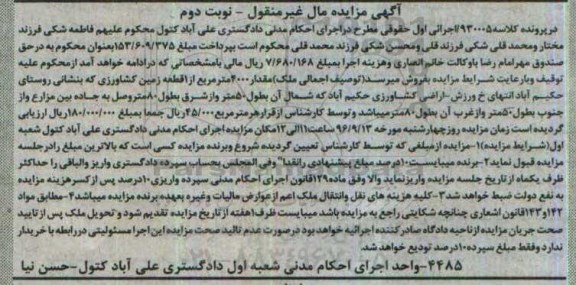 آگهی مزایده مال غیرمنقول - نوبت دوم
درپرونده کلاسه۹۳۰۰۰۵/اجرائی اول حقوقی مطرح دراجرای احکام مدنی دادگستری علی آباد کتول محکوم علیهم فاطمه شکی فرزند
مختار ومحمد قلی شکی فرزند قلی ومحسن شکی فرزند محمد قلی محکوم است بپرداخت مبلغ ۱۵۳/۶۰۹/۳۷۵بعنوان محکوم به درحق
صندوق مهرامام رضا باوکالت خانم انصاری وهزینه اجرا بمبلغ ۷/۶۸۰/۱۶۸ ریال مالی بامشخصاتی که درادامه خواهد آمد ازمحکوم علیه
توقیف وبارعایت شرایط مزایده بفروش میرسد(توصیف اجمالی ملک)مقدار۴۰۰۰مترمربع از۱قطعه زمین کشاورزی که بنشانی روستای
حکیم آباد انتهای خ ورزش -اراضی کشاورزی حکیم آباد که شمال آن بطول۵۰متر وازشرق بطول۸۰متروصل به جاده بین مزارع واز
جنوب بطول۵۰متر وازغرب آن بطول۸۰مترمیباشد و توسط کارشناس ازقرارهرمترمربع۴۵/۰۰۰ریال جمعا بمبلغ ۱۸۰/۰۰۰/۰۰۰ریال ارزیابی
گردیده است زمان مزایده روزچهارشنبه مورخه ۹۶/۹/۱۳ ساعت۱۱الی۱۲مکان مزایده اجرای احکام مدنی دادگستری علی آباد کتول شعبه
اول(شرایط مزایده)۱-مزایده ازمبلغی که توسط کارشناس تعیین گردیده شروع وبرنده مزایده کسی است که بالاترین مبلغ رادرجلسه
مزایده قبول نماید۲-برنده میبایست۱۰درصد مبلغ پیشنهادی رانقدا" وفی المجلس بحساب سپرده دادگستری واریز والباقی را حداکثر
ظرف یکماه از تاریخ جلسه مزایده واریزنماید والا وفق ماده۱۲۹قانون اجرای احکام مدنی سپرده واریزی۱۰درصد پس از کسرهزینه مزایده
به نفع دولت ضبط خواهد شد۳-کلیه هزینه های نقل وانتقال ملک اعم ازعوارض مالیات وغیره بعهده برنده مزایده میباشد۴-مطابق مواد
۱۴۲و۱۴۳قانون اشعاری چنانچه شکایتی راجع به مزایده باشد میبایست ظرف۱هفته از تاریخ مزایده تقدیم شود و تحویل ملک پس از تایید
صحت جریان مزایده ازناحیه دادگاه صادر کننده اجرائیه خواهد بود درصورت عدم تائید صحت مزایده این اجرا مسئولیتی دررابطه با خریدار
ندارد وفقط مبلغ سپرده۱۰درصد تودیع خواهد شد.
۴۴۸۵-واحد اجرای احکام مدنی شعبه اول دادگستری علی آباد کتول-حسن نیا